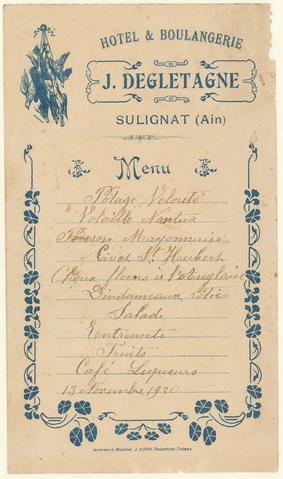 HOTEL & BOULANGERIE
J. DEGLETAGNE
SULIGNAT (Ain)
Menu
Potage Velouté
Volaille Nantua
Poisson Mayonnaise
Civet St Hubert
Choux fleurs à l'Anglaise
Dindonneaux rôtis
Salade
Entremets
Fruits
Café Liqueurs
13 Novembre 1920
IMPRIMERIE MODERNE J.